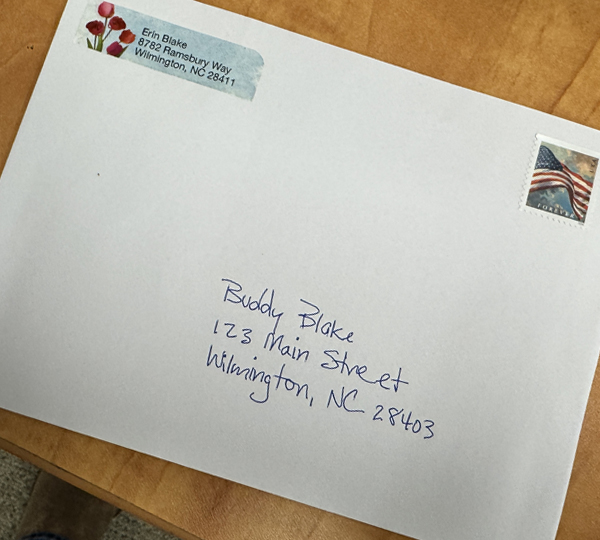 Erin Blake
8782 Ramsbury Way
Wilmington, NC 28411
FOREVER
Buddy Blake
123 Main Street
Wilmington, NC 28403